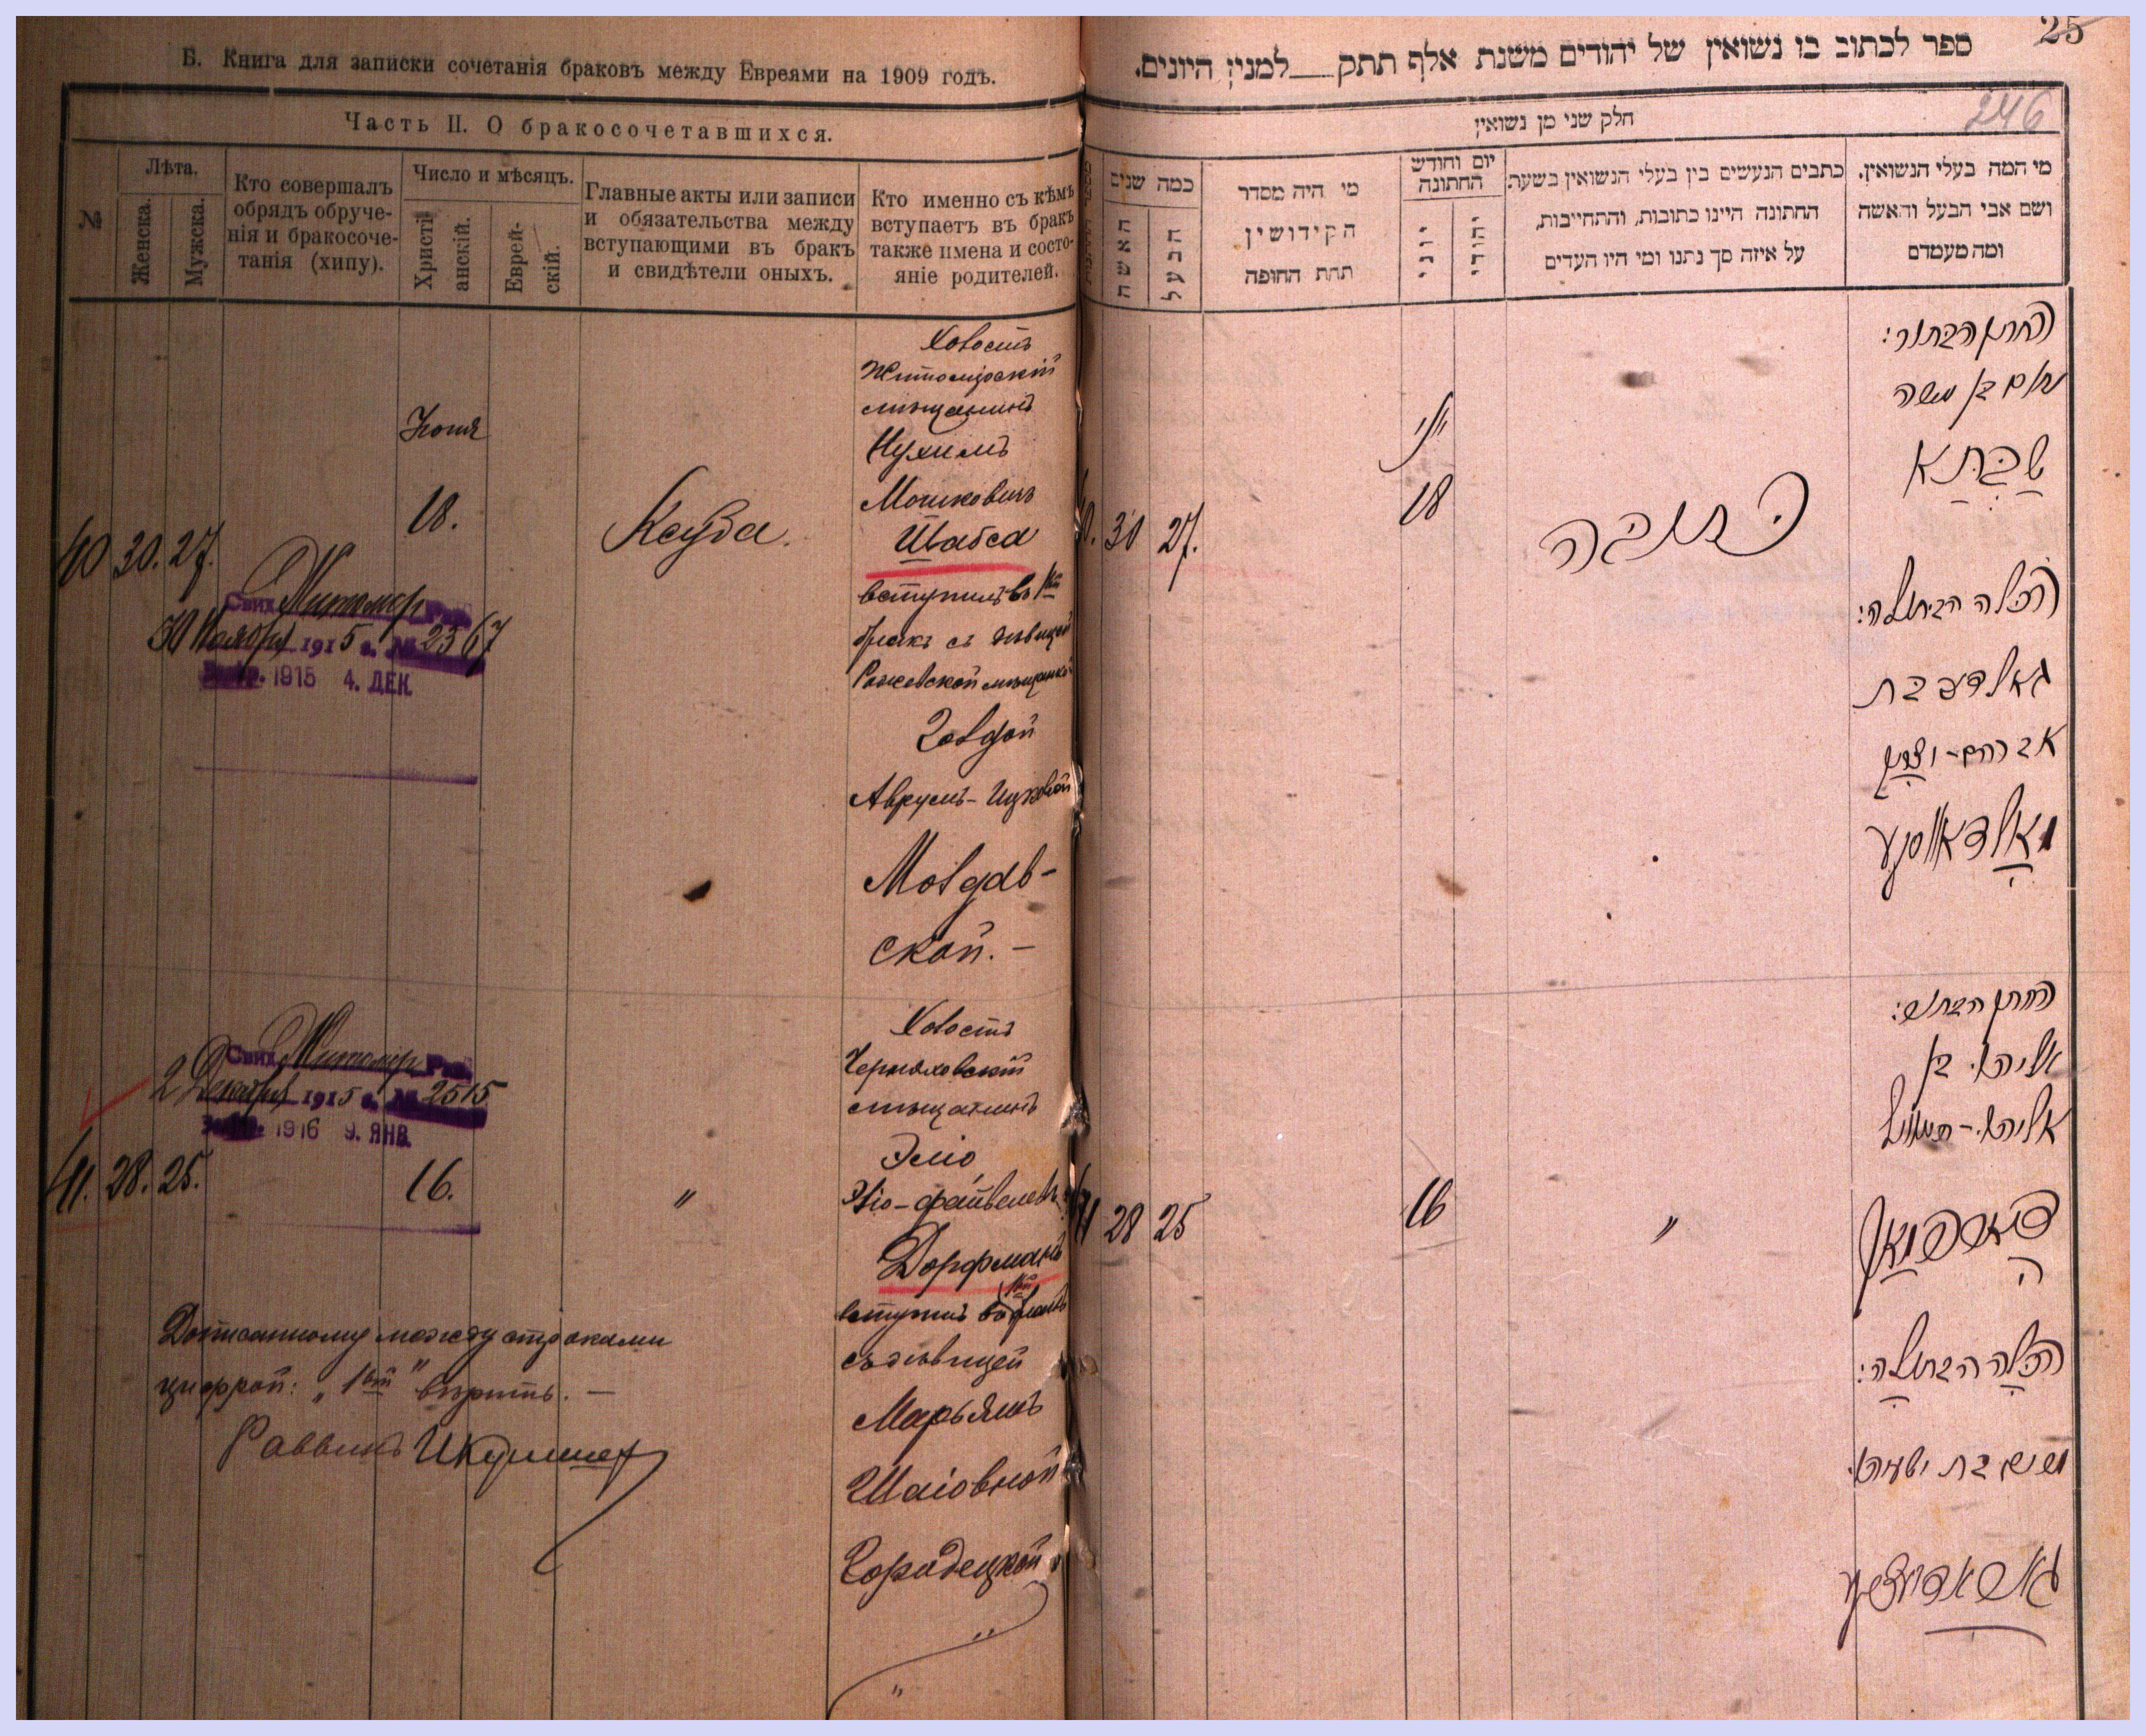 Б. Книга для записки сочетанія браковъ между Евреями на 1909 годъ.
Часть II. О бракосочетавшихся.
№
Лѣта.
Женска.
Мужска.
Кто совершалъ
обрядъ обруче-
нія и бракосоче-
танія (хипу).
Число и мѣсяцъ.
Христі
анскій.
Еврей-
скій.
Главные акты или записи
и обязательства между
вступающими въ бракъ
и свидѣтели оныхъ.
Кто именно съ кѣмъ
вступаетъ въ бракъ
также имена и состо-
яніе родителей.
40 30. 27.
Іюня
18.
Ксуба.
Холостъ
Житомірскій
мѣщанинъ
Нухимъ
Мошковичъ
Шабса
вступилъ въ 1й
бракъ съ дѣвицей
мѣщанкой
Голдой
Аврумъ-Ицковой
Молдав-
ской. —
Житомір
30 Ноября 1915 г. № 2367
1915 4. ДЕК.
Житомір
2 Декабря 1915 г. № 2515
1916 9. ЯНВ.
41. 28. 25.
16.
"
Холостъ
Черняховскій
мѣщанинъ
Эліо
Эліо-Файвелев
Дорфманъ
вступилъ въ 1ый бракъ
съ дѣвицей
Марьямъ
Шаіовной
Городецкой
Дописанному между строками
цифрой: „1ый" вѣрить. —
Раввинъ
25
ספר לכתוב בו נשואין של יהודים משנת אלף תתק __ למנין היונים.
246
חלק שני מן נשואין
כמה שנים
האשה
הבעל
מי היה מסדר
הקידושין
תחת החופה
יום וחודש
החתונה
יוני
יהודי
כתבים הנעשים בין בעלי הנשואין בשעת
החתונה היינו כתובות, והתחייבות,
על איזה סך נתנו ומי היו העדים
מי המה בעלי הנשואין.
ושם אבי הבעל והאשה
ומה מעמדם
40. 30 27.
יוני
18
כתובה
החתן הבחור:
נחום בן משה
שבתא
הכלה הבתולה:
גאלדע בת
אברהם-יצחק
מאלדאווסקע
41 28 25
16
"
החתן הבחור:
אליהו בן
דארפמאן
הכלה הבתולה:
מרים בת ישעיהו
גאראדעצקע